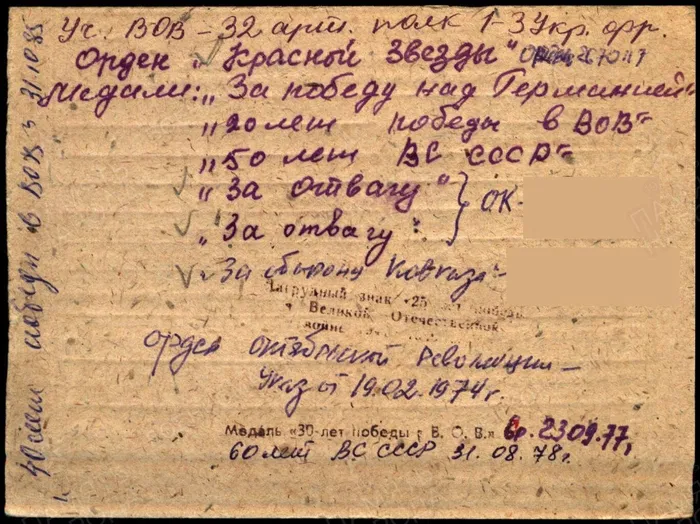 Уч. ВОВ – 32 арт. полк 1-3 Укр. фр.
Орден „Красной Звезды"
Медали: „За победу над Германией"
„20 лет победы в ВОВ"
„50 лет ВС СССР"
„За отвагу" ОК-
„За отвагу"
„За оборону Кавказа"
Нагрудный знак «25 лет победы
в Великой Отечественной
войне
орден октябрьской революции –
Указ от 19.02.1974г.
Медаль «30-лет победы в В. О. В.» вр. 23.09.77г
60 лет ВС СССР 31.08.78г.
40 лет победы в ВОВ 31.10.85